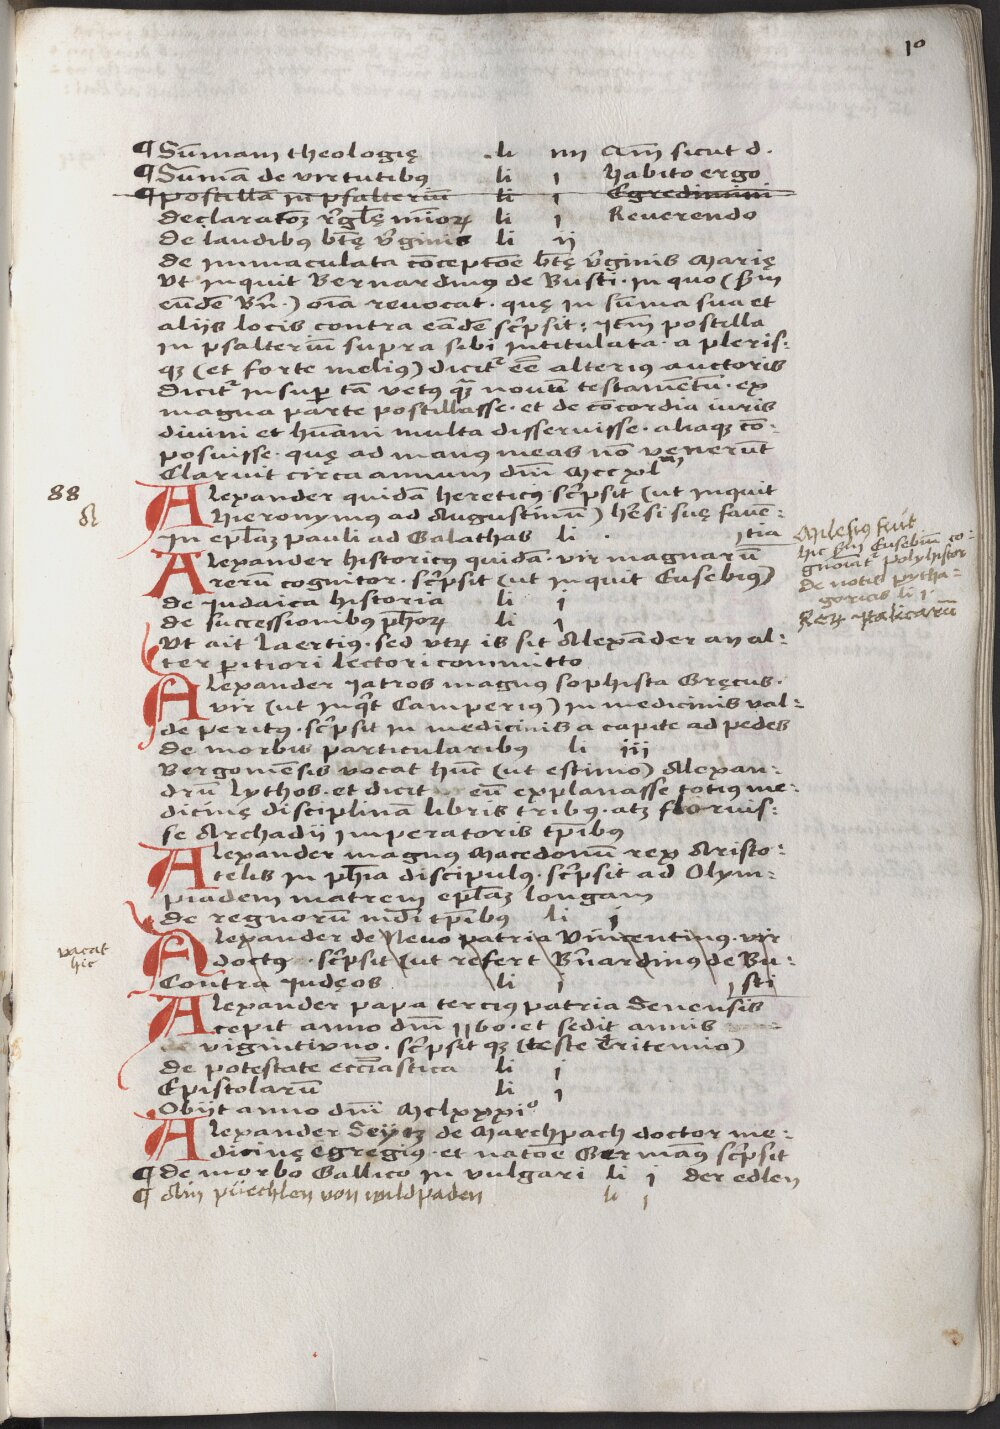 10
¶ Sum̄am theologię li iiii Cum̄ sicut d.
¶ Sum̄ā de virtutibus li i habito ergo
¶ Postillā in psalteriū li i Egredimini
declaratōꝫ rĕglę minoꝝ li i Reuerendo
de laudibus btę virginis li ij
de immaculata cōceptōe btę virginis Marię
Vt inquit Bernardinus de Busti. in quo (s̄m
eūdē Br̄n.) oīa reuocat. quę in sūma sua et
alijs locis contra eādē sc̄psit: Itē postilla
in psalteriū supra sibi intitulata. a pleris:
qꝫ (et forte melius) dicit̄ eē alterius auctoris
Dicit̄ insup tā vetus qꝫ nouū testamētū. ex
magna parte postillasse. et de cōcordia iuris
diuini et hūani multa disseruisse. aliaqꝫ cō:
posuisse. quę ad manus meas nō venerūt
Claruit circa annum dn̄i Mccxl
88
Alexander quidā hereticus sc̄psit (ut inquit
Hieronymus ad Augustinū) hersi suę faue:
in eplāꝫ Pauli ad Galathas li . itia
Alexander historicus quidā. vir magnarū
rerū cognitor. sc̄psit (ut inquit Eusebius)
de Judaica historia li i
de successionibus phoꝝ li i
Vt ait Laertius. sed vtꝝ is sit Alexāder an al:
ter pitiori lectori committo
Milesius fuit
hic s̄m Eusebiū co:
gnoiat̄ polyhistor
de notis pytha:
goricis li i.
Reꝝ Italicarū
Alexander Iatros magnus sophista Gręcus.
vir (ut inqt Camperius) in medicinis val:
de peritus. sc̄psit in medicinis a capite ad pedes
de morbis particularibus li iij
Bergomēsis vocat hūc (ut estimo) Alexan:
drū lythos. et dicit eū explanasse totius me:
dicinę disciplinā libris tribus. atqꝫ floruis:
se Archadij imperatoris tpibus
Alexander magnus Macedonū rex Aristo:
telis in phia discipulus. sc̄psit ad Olym:
piadem matrem eplāꝫ longam
de regnorū mdi tpibus li i
vacat
hic
Alexander de Neuo patria Vincentinus. vir
doctus. sc̄psit (ut refert Brnardinus de Bu:
Contra iudęos li i sti
Alexander papa tercius patria Senensis
cepit anno dn̄i 1160. et sedit annis
vigintivno. sc̄psit qꝫ (teste Tritemio)
de potestate ecciāstica li i
Epistolarū li i
Obijt anno dn̄i Mclxxxi°
Alexander Seytz de Marchpach doctor me:
dicinę egregius. et natōe Germāus sc̄psit
¶ de morbo Gallico in vulgari li i der edlen
¶ Ain püechlen von wildpaden li i